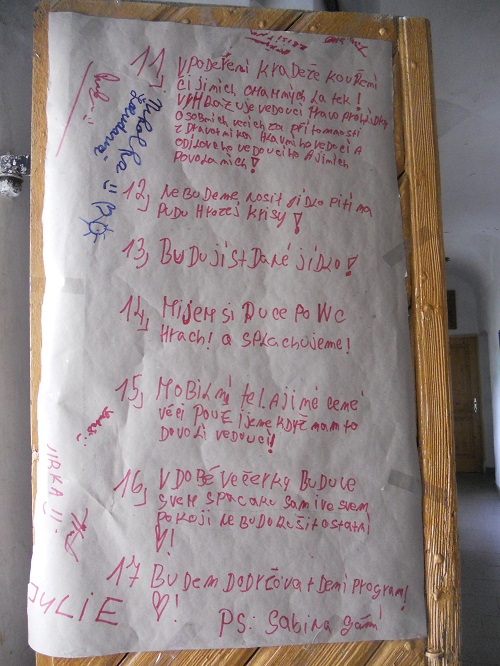 11, V PODEŘENÍ KRADEŽE KOUŘENÍ
ČI JINICH OHAMNÝCH LATEK!
VYHRAŽUJE VEDOUCÍ PRAVO PROHLIDKY
OSOBNICH VECICH ZA PŘITOMNOSTI
ZDRAVOTNIKA HLAVNIHO VEDOCI A
ODILOVEHO VEDOUCIHO A JINICH
POVOLANICH!
12, NEBUDEME NOSIT JIDLO PITI NA
PUDU HROZEJ KRISY!
13, BUDU JÍST DANÉ JÍDLO!
14, MIJEM SI RUCE PO WC
HRACH! A SPLACHUJEME!
15, MOBILNÍ TEL. A JINÉ CENÉ
VĚCI POUŽIJEME KDYŽ NAM TO
DOVOLI VEDOUCÍ!
16, V DOBĚ VEČERKY BUDU VE
SVEM SPACAKU SAM I VE SVEM
POKOJI NEBUDU RUŠIT OSTATNÍ
!
17 BUDEM DODRŽOVAT DENI PROGRAM!
!
PS: Sabina
Nikolka !!
JIRKA !!
JULIE